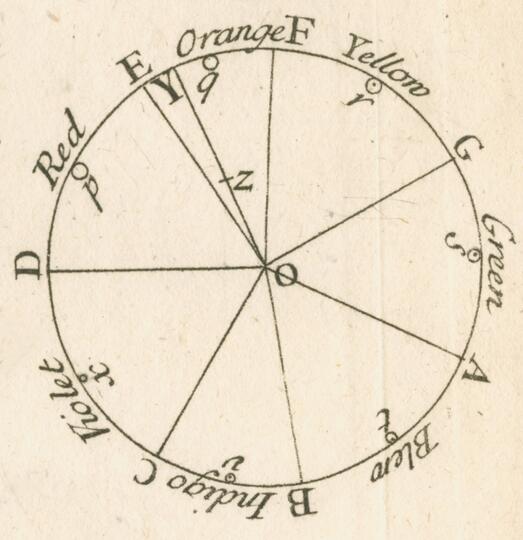 Orange
F
Yellow
E
Y
q
r
Red
p
G
z
Green
s
D
O
Violet
x
A
t
Blew
v
C
Indigo
B